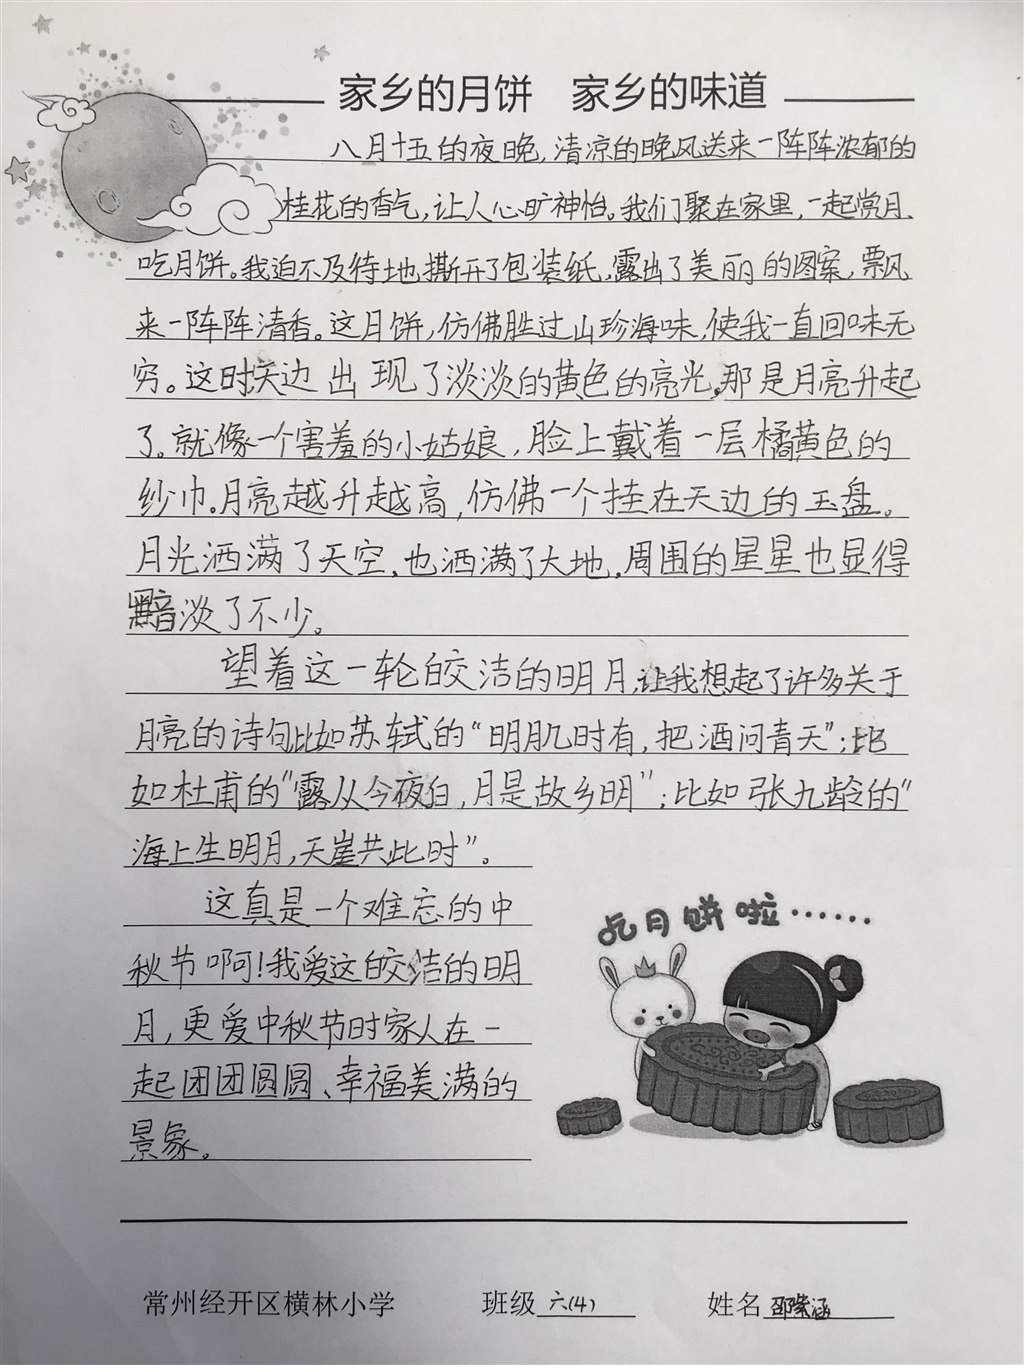 家乡的月饼 家乡的味道
八月十五的夜晚，清凉的晚风送来一阵阵浓郁的
桂花的香气，让人心旷神怡。我们聚在家里，一起赏月、
吃月饼。我迫不及待地撕开了包装纸，露出了美丽的图案，飘
来一阵阵清香。这月饼，仿佛胜过山珍海味，使我一直回味无
穷。这时天边出现了淡淡的黄色的亮光，那是月亮升起
了。就像一个害羞的小姑娘，脸上戴着一层橘黄色的
纱巾。月亮越升越高，仿佛一个挂在天边的玉盘。
月光洒满了天空，也洒满了大地，周围的星星也显得
黯淡了不少。
望着这一轮皎洁的明月，让我想起了许多关于
月亮的诗句比如苏轼的“明月几时有，把酒问青天”；比
如杜甫的“露从今夜白，月是故乡明”；比如张九龄的“
海上生明月，天崖共此时”。
这真是一个难忘的中
秋节啊！我爱这皎洁的明
月，更爱中秋节时家人在一
起团团圆圆、幸福美满的
景象。
吃月饼啦……
常州经开区横林小学 班级 六(4) 姓名 邵紫涵